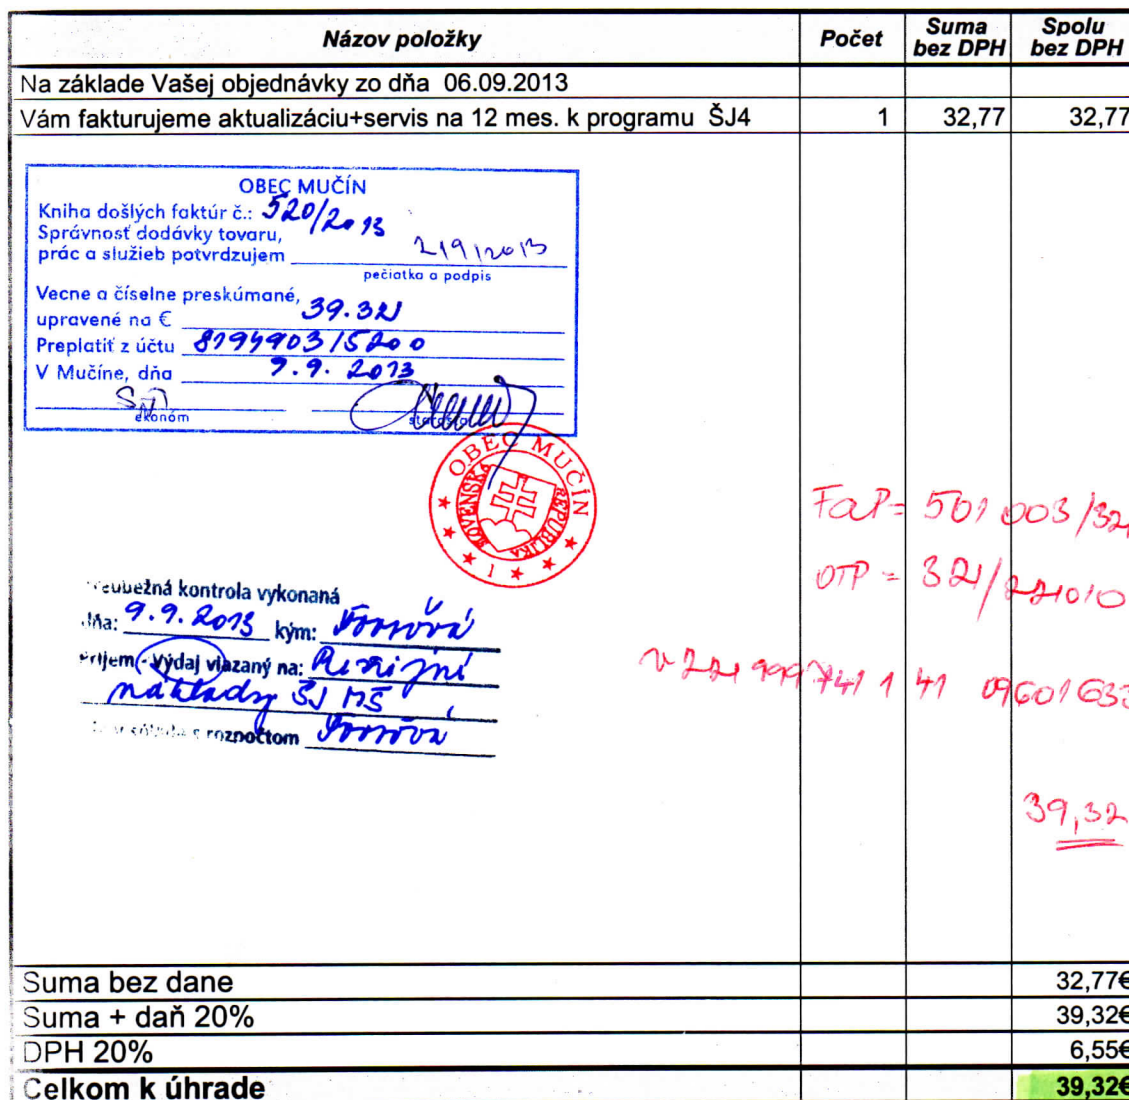 Názov položky Počet Suma bez DPH Spolu bez DPH
Na základe Vašej objednávky zo dňa 06.09.2013
Vám fakturujeme aktualizáciu+servis na 12 mes. k programu ŠJ4 1 32,77 32,77
OBEC MUČÍN
Kniha došlých faktúr č.: 520/2013
Správnosť dodávky tovaru,
prác a služieb potvrdzujem 2/9/2013
pečiatka a podpis
Vecne a číselne preskúmané,
upravené na € 39.32
Preplatiť z účtu 8194903/5200
V Mučíne, dňa 9.9.2013
ekonóm starosta
OBEC MUČÍN
SLOVENSKÁ REPUBLIKA
1
FaP= 501 003/321
OTP = 321/221010
kontrola vykonaná
9.9.2013 kým:
Výdaj viazaný na: Režijné
náklady ŠJ MŠ
s rozpočtom
741 1 41 09601 633
39,32
Suma bez dane 32,77€
Suma + daň 20% 39,32€
DPH 20% 6,55€
Celkom k úhrade 39,32€